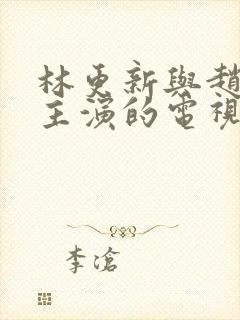 林更新與趙
主演的電視
李滄